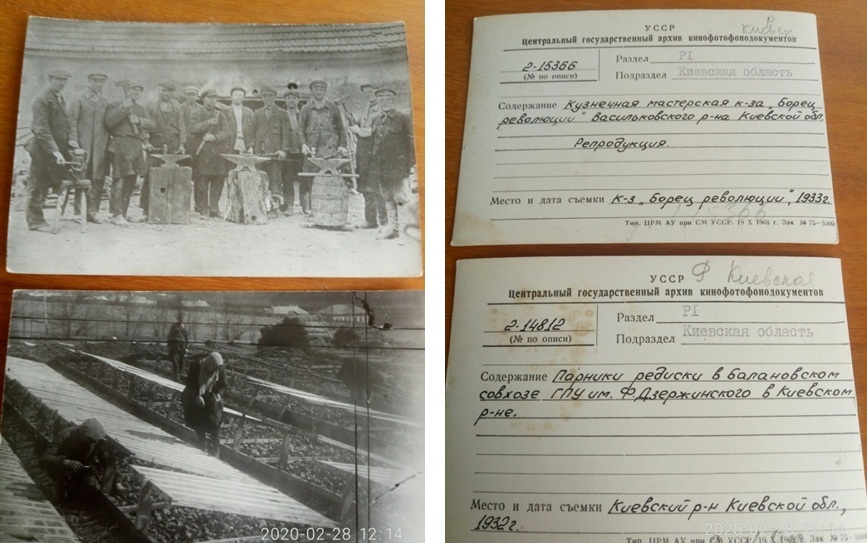 2020-02-28 12:14
УССР Киевск
Центральный государственный архив кинофотофонодокументов
2-15366
(№ по описи)
Раздел РI
Подраздел Киевская область
Содержание Кузнечная мастерская к-за „Борец
революции" Васильковского р-на Киевской обл.
Репродукция.
Место и дата съемки К-з „Борец революции", 1933г.
Тип. ЦРМ АУ при СМ УССР. 19 X 1968 г. Зак № 75-
УССР Ф Киевская
Центральный государственный архив кинофотофонодокументов
2-14812
(№ по описи)
Раздел РI
Подраздел Киевская область
Содержание Парники редиски в Балановском
совхозе ГПУ им. Ф.Дзержинского в Киевском
р-не.
Место и дата съемки Киевский р-н Киевской обл.,
1932г.
2020-02-28 12:14
Тип. ЦРМ АУ при СМ УССР. 19 Зак № 75-